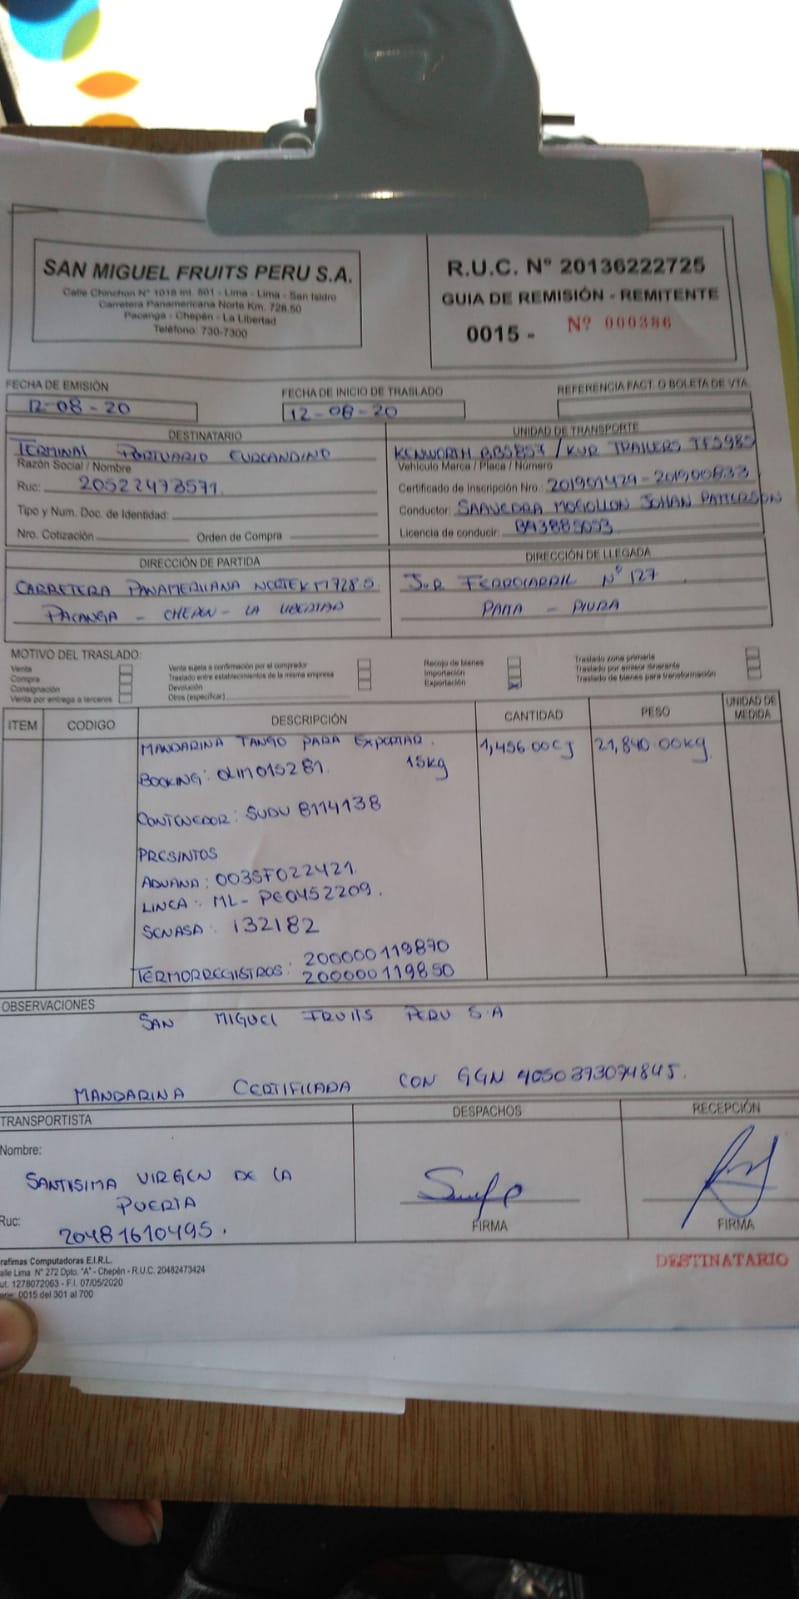 SAN MIGUEL FRUITS PERU S.A.
Calle Chinchon N° 1018 Int. 501 - Lima - Lima - San Isidro
Carretera Panamericana Norte Km. 728.50
Pacanga - Chepén - La Libertad
Teléfono: 730-7300
R.U.C. N° 20136222725
GUIA DE REMISIÓN - REMITENTE
0015 - Nº 000386
FECHA DE EMISIÓN
12-08-20
FECHA DE INICIO DE TRASLADO
12-08-20
REFERENCIA FACT. O BOLETA DE VTA.
DESTINATARIO
TERMINAL PORTUARIO EUROANDINO
Razón Social / Nombre
Ruc: 20522473571
Tipo y Num. Doc. de Identidad:
Nro. Cotización Orden de Compra
UNIDAD DE TRANSPORTE
KENWORTH / KUR TRAILERS
Vehículo Marca / Placa / Número
Certificado de Inscripción Nro.: 201901429 - 201900833
Conductor: SAAVEDRA MOGOLLON JOHAN PATTERSON
Licencia de conducir: B43885053
DIRECCIÓN DE PARTIDA
CARRETERA PANAMERICANA NORTE KM 728.5
PACANGA - CHEPEN - LA LIBERTAD
DIRECCIÓN DE LLEGADA
FERROCARRIL N° 127
PAITA - PIURA
MOTIVO DEL TRASLADO:
Venta
Compra
Consignación
Venta por entrega a terceros
Venta sujeta a confirmación por el comprador
Traslado entre establecimientos de la misma empresa
Devolución
Otros (especificar)
Recojo de bienes
Importación
Exportación
Traslado zona primaria
Traslado por emisor itinerante
Traslado de bienes para transformación
ITEM CODIGO DESCRIPCIÓN CANTIDAD PESO UNIDAD DE MEDIDA
MANDARINA TANGO PARA EXPORTAR. 1,456.00CJ 21,840.00kg
BOOKING: 15kg
CONTENEDOR: SUDU 8114138
PRESINTOS
ADUANA: 003SF022421
LINEA: ML-PE0452209.
SENASA: 132182
TERMORREGISTROS: 200000119870
200000119850
OBSERVACIONES
SAN MIGUEL FRUITS PERU S.A
MANDARINA CERTIFICADA CON GGN 4050373094845.
TRANSPORTISTA
Nombre:
SANTISIMA VIRGEN DE LA
PUERTA
Ruc: 20481610495.
DESPACHOS
FIRMA
RECEPCIÓN
FIRMA
rafimas Computadoras E.I.R.L.
alle Lima N° 272 Dpto. "A" - Chepén - R.U.C. 20482473424
ut. 1278072063 - F.I. 07/05/2020
erie: 0015 del 301 al 700
DESTINATARIO